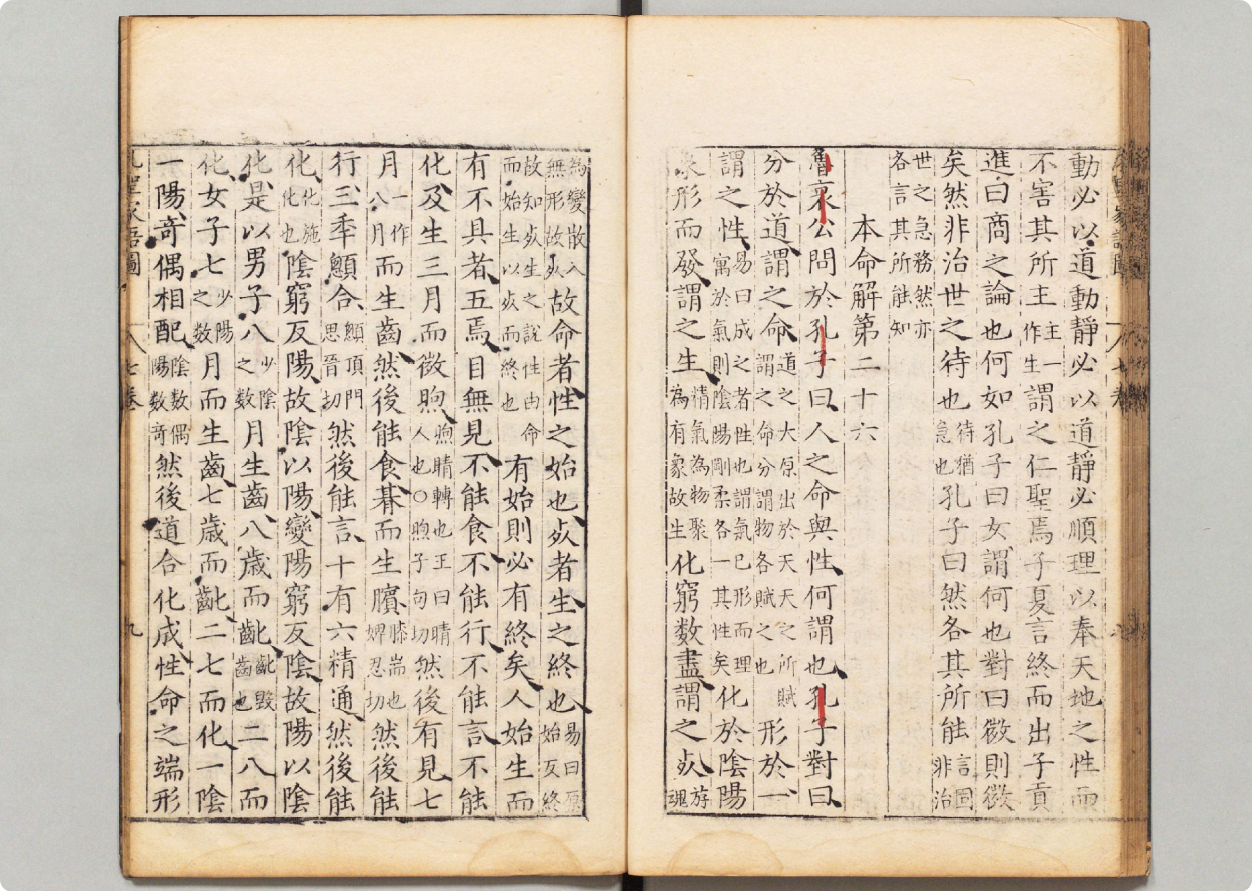 動必以道動靜必以道靜必順理以奉天地之性而
不害其所主主一作生謂之仁聖焉子夏言終而出子貢
進曰商之論也何如孔子曰女謂何也對曰微則微
矣然非治世之待也待猶急也孔子曰然各其所能言固非治
世之急務然亦各言其所能知
本命解第二十六
魯哀公問於孔子曰人之命與性何謂也孔子對曰
分於道謂之命道之大原出於天天之所賦謂之命分謂物各賦之也形於一
謂之性易曰成之者性也謂氣已形而理寓於氣則陰陽剛柔各一其性矣化於陰陽
象形而發謂之生精氣為物聚為有象故生化窮數盡謂之㱁游魂
為變散入無形故㱁故命者性之始也㱁者生之終也易曰原始反終
故知㱁生之說性由命而始生以㱁而終也有始則必有終矣人始生而
有不具者五焉目無見不能食不能行不能言不能
化及生三月而微煦煦睛轉也王曰睛人也○煦子句切然後有見七
月一作八月而生齒然後能食朞而生臏膝耑也婢忍切然後能
行三年顖合顖頂門思晉切然後能言十有六精通然後能
化化施化也陰窮反陽故陰以陽變陽窮反陰故陽以陰
化是以男子八少陰之數月生齒八歳而齔齔毀齒也二八而
化女子七少陽之數月而生齒七歳而齔二七而化一陰
一陽奇偶相配陰數偶陽數奇然後道合化成性命之端形
孔聖家語圖 八七卷 九